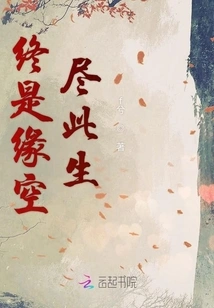 终是缘空
尽此生
著
云起书院